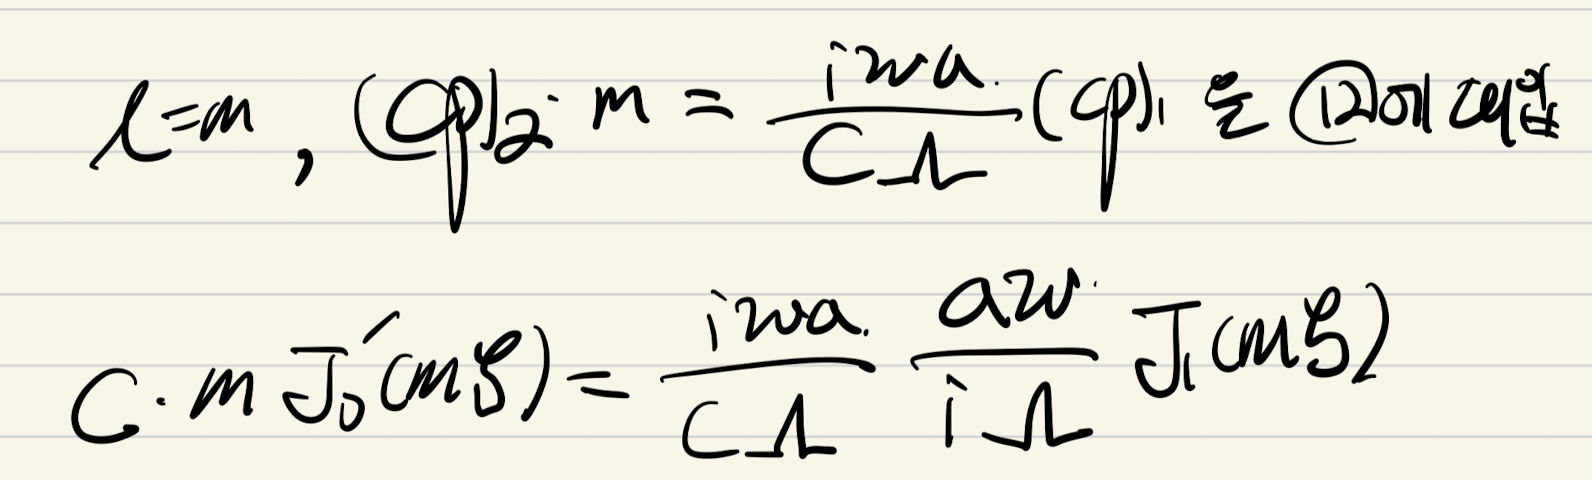 l=m, (φ)₂·m = iwa/CΩ (φ)₁ 를 ⑫에 대입
C·m J₀′(mζ) = iwa/CΩ aw/iΩ J₁(mζ)